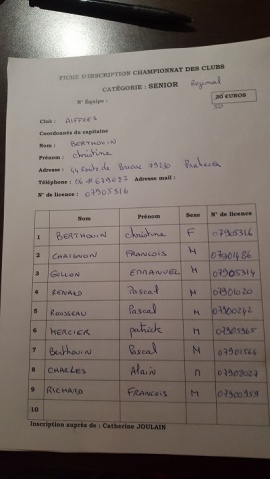 FICHE D'INSCRIPTION CHAMPIONNAT DES CLUBS
CATÉGORIE : SENIOR Régional
N° Équipe : 30 EUROS
Club : AIFFRES
Coordonnés du capitaine
Nom : BERTHOUIN
Prénom : christine
Adresse : 44 Route de 79230 Prahecq
Téléphone : 06 Adresse mail :
N° de licence : 07905316
Nom Prénom Sexe N° de licence
1 BERTHOUIN christine F 07905316
2 CHAIGNON FRANCOIS H 07901486
3 GULLON EMMANUEL H 07905314
4 RENAUD Pascal H 07901020
5 ROUSSEAU Pascal M 07900242
6 MERCIER patrick M 07905965
7 Berthouin Pascal M 07901564
8 CHARLES Alain M 07902027
9 RICHARD FRANCOIS M 07900959
10
Inscription auprès de : Catherine JOULAIN